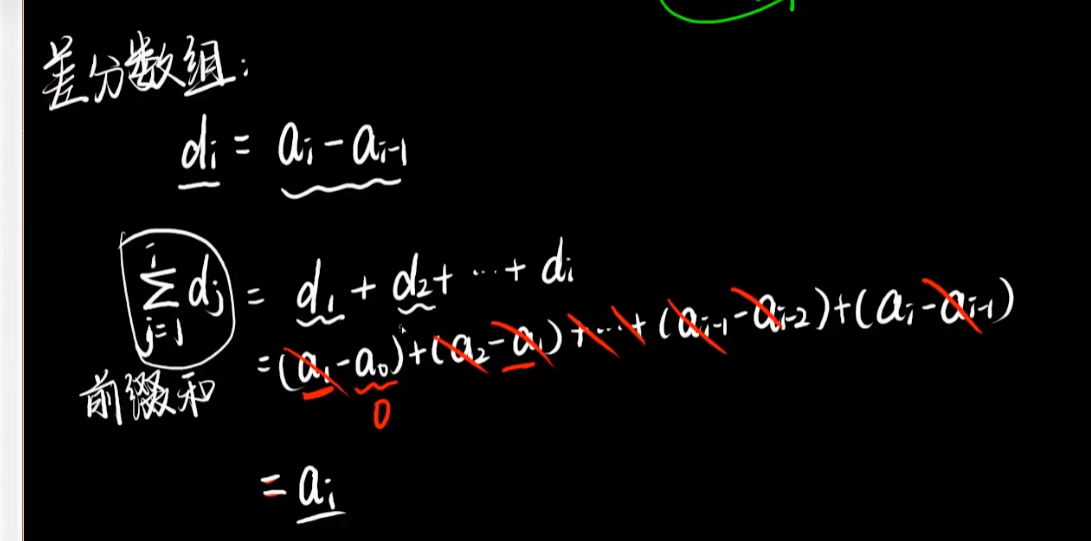 差分数组:
dᵢ = aᵢ - aᵢ₋₁
∑ⱼ₌₁ⁱ dⱼ = d₁ + d₂ + ⋯ + dᵢ
前缀和 = (a₁ - a₀) + (a₂ - a₁) + ⋯ + (aᵢ₋₁ - aᵢ₋₂) + (aᵢ - aᵢ₋₁)
0
= aᵢ